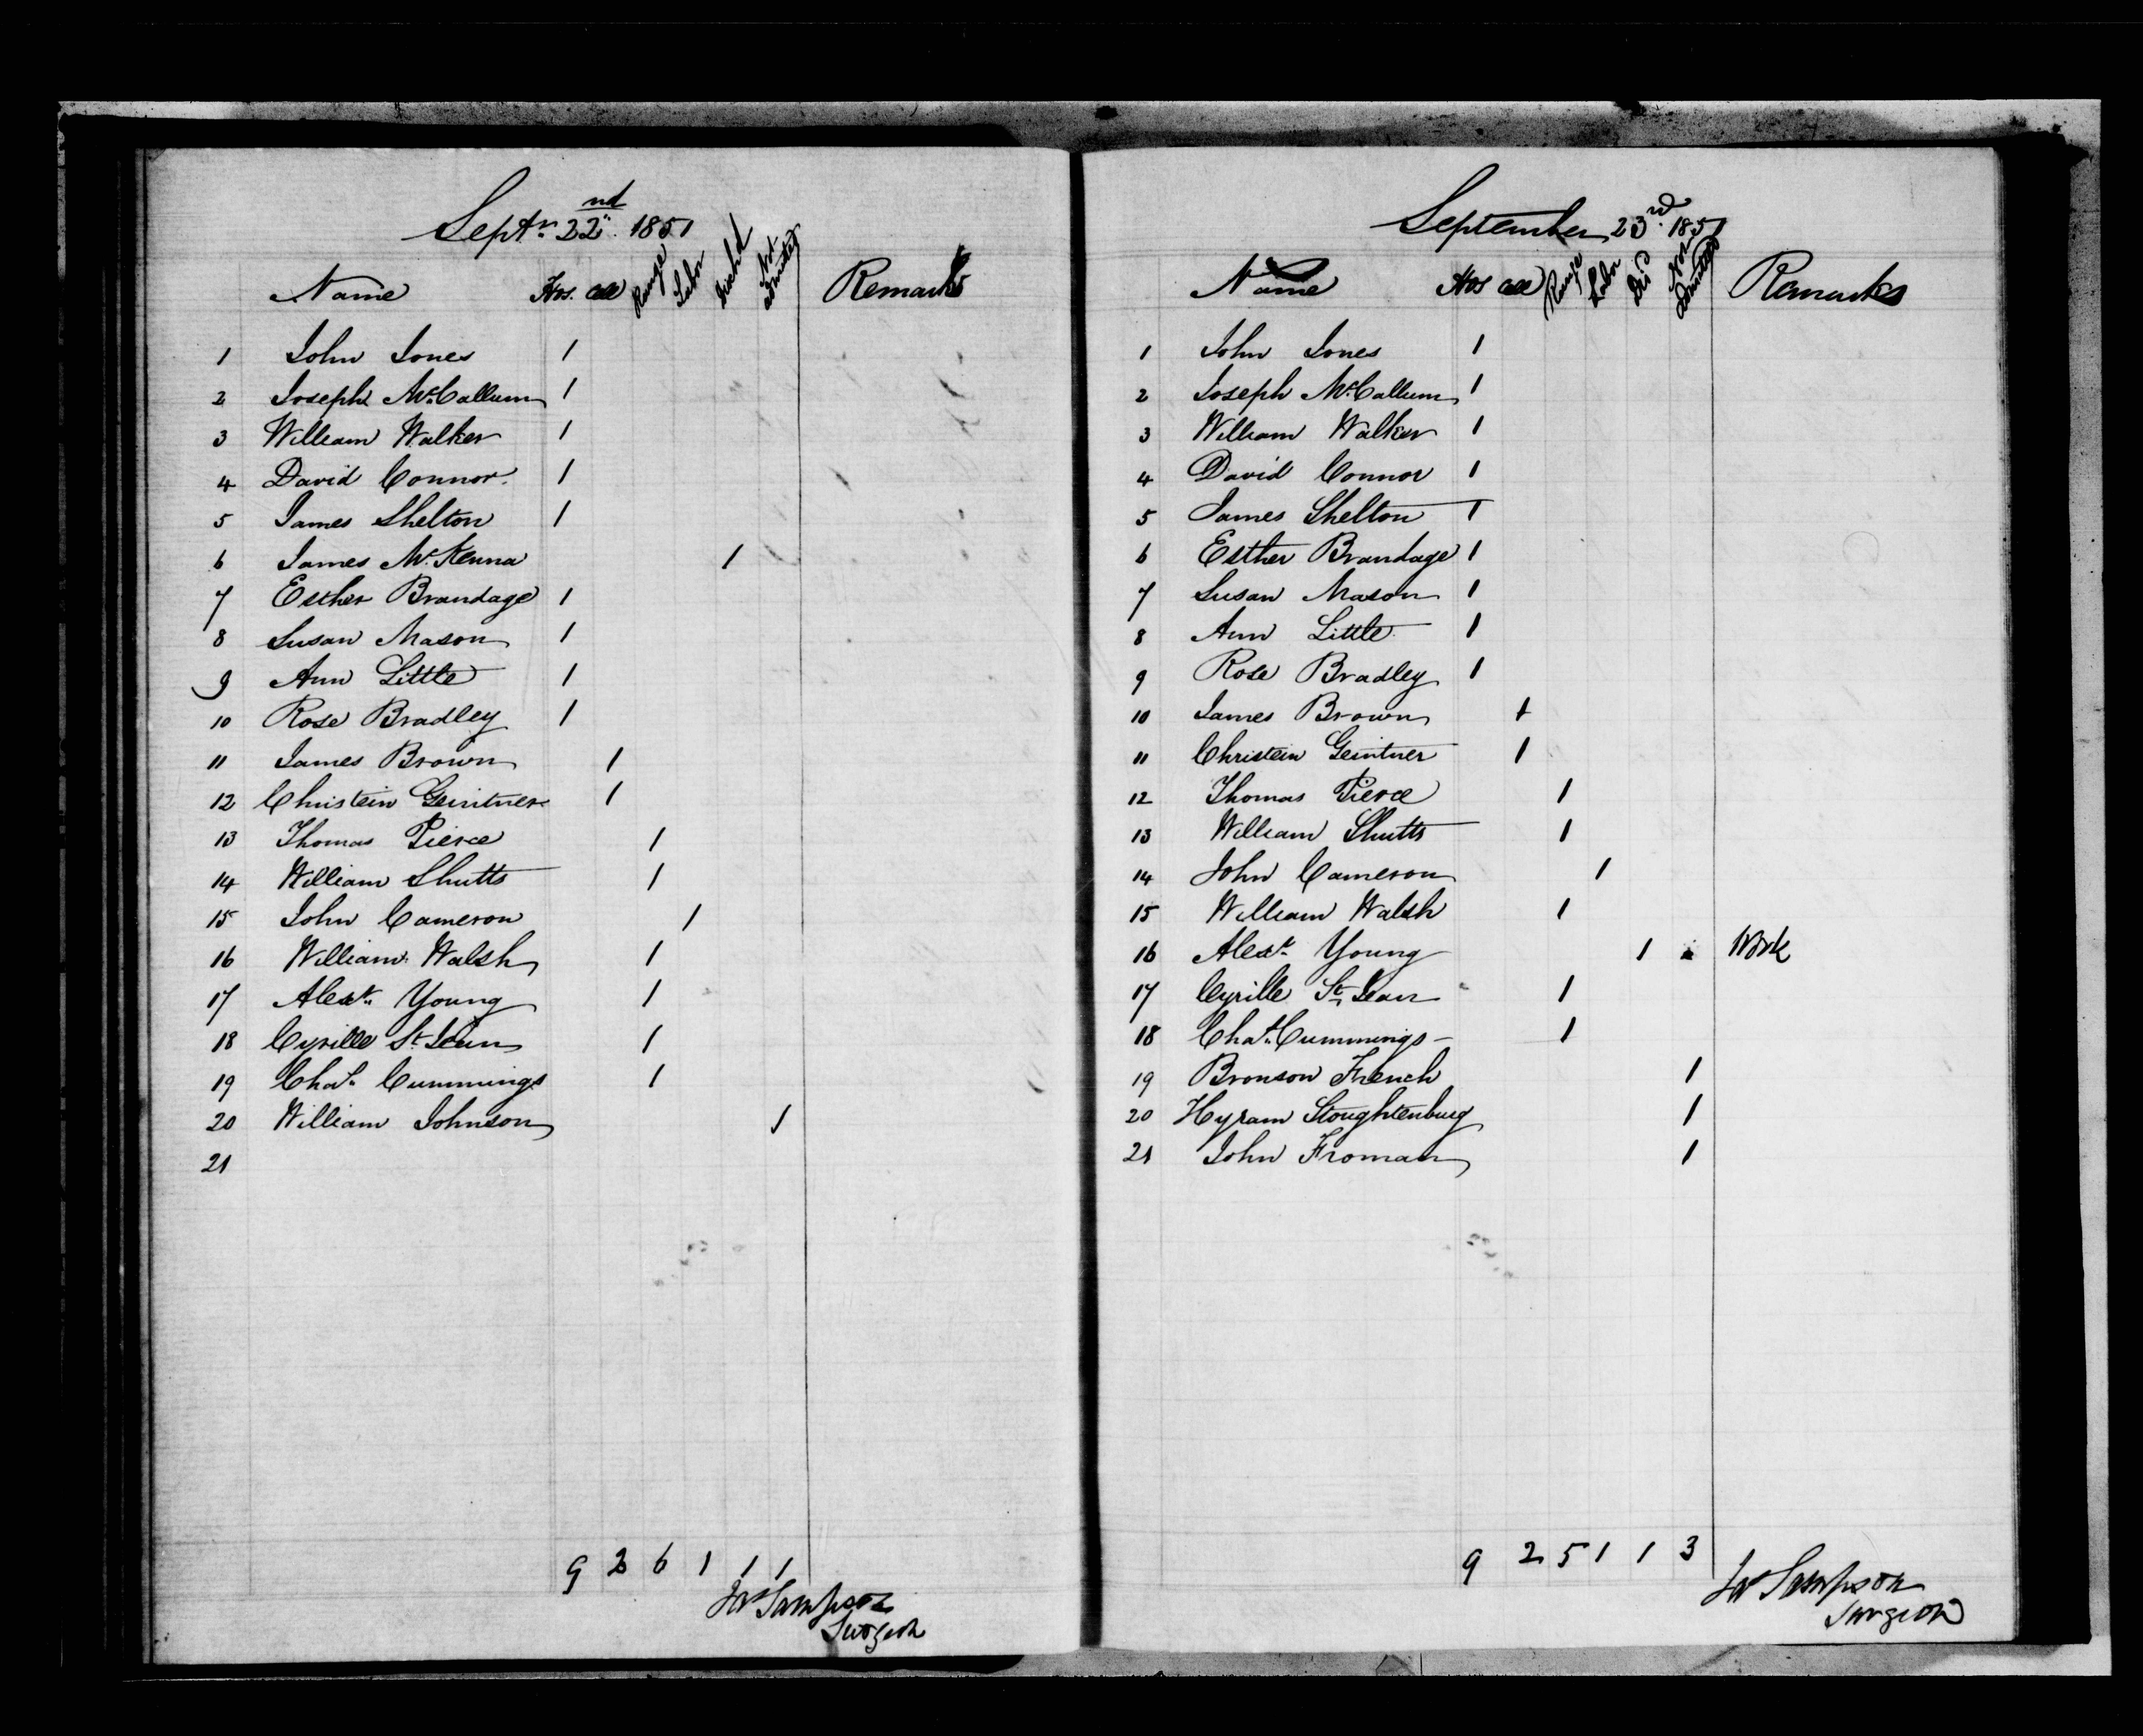 Septr 22nd 1851
Name Hos. Cell Range Labor Dischd Not Admitted Remarks
1 John Jones 1
2 Joseph McCallum 1
3 William Walker 1
4 David Connor. 1
5 James Shelton 1
6 James McKenna 1
7 Esther Brandage 1
8 Susan Mason 1
9 Ann Little 1
10 Rose Bradley 1
11 James Brown 1
12 Christein Geintner 1
13 Thomas Pierce 1
14 William Shutts 1
15 John Cameron 1
16 William Walsh 1
17 Alexr Young 1
18 Cyrille St Jean 1
19 Chas Cummings 1
20 William Johnson 1
21
9 2 6 1 1 1
Jas Sampson
Surgeon
September 23rd 1851
Name Hos Cell Range Labor Dis Not Admitted Remarks
1 John Jones 1
2 Joseph McCallum 1
3 William Walker 1
4 David Connor 1
5 James Shelton 1
6 Esther Brandage 1
7 Susan Mason 1
8 Ann Little 1
9 Rose Bradley 1
10 James Brown 1
11 Christein Geintner 1
12 Thomas Pierce 1
13 William Shutts 1
14 John Cameron 1
15 William Walsh 1
16 Alexr Young 1 Work
17 Cyrille St Jean 1
18 Chas Cummings 1
19 Bronson French 1
20 Hyram Stoughtenburg 1
21 John Froman 1
9 2 5 1 1 3
Jas Sampson
Surgeon